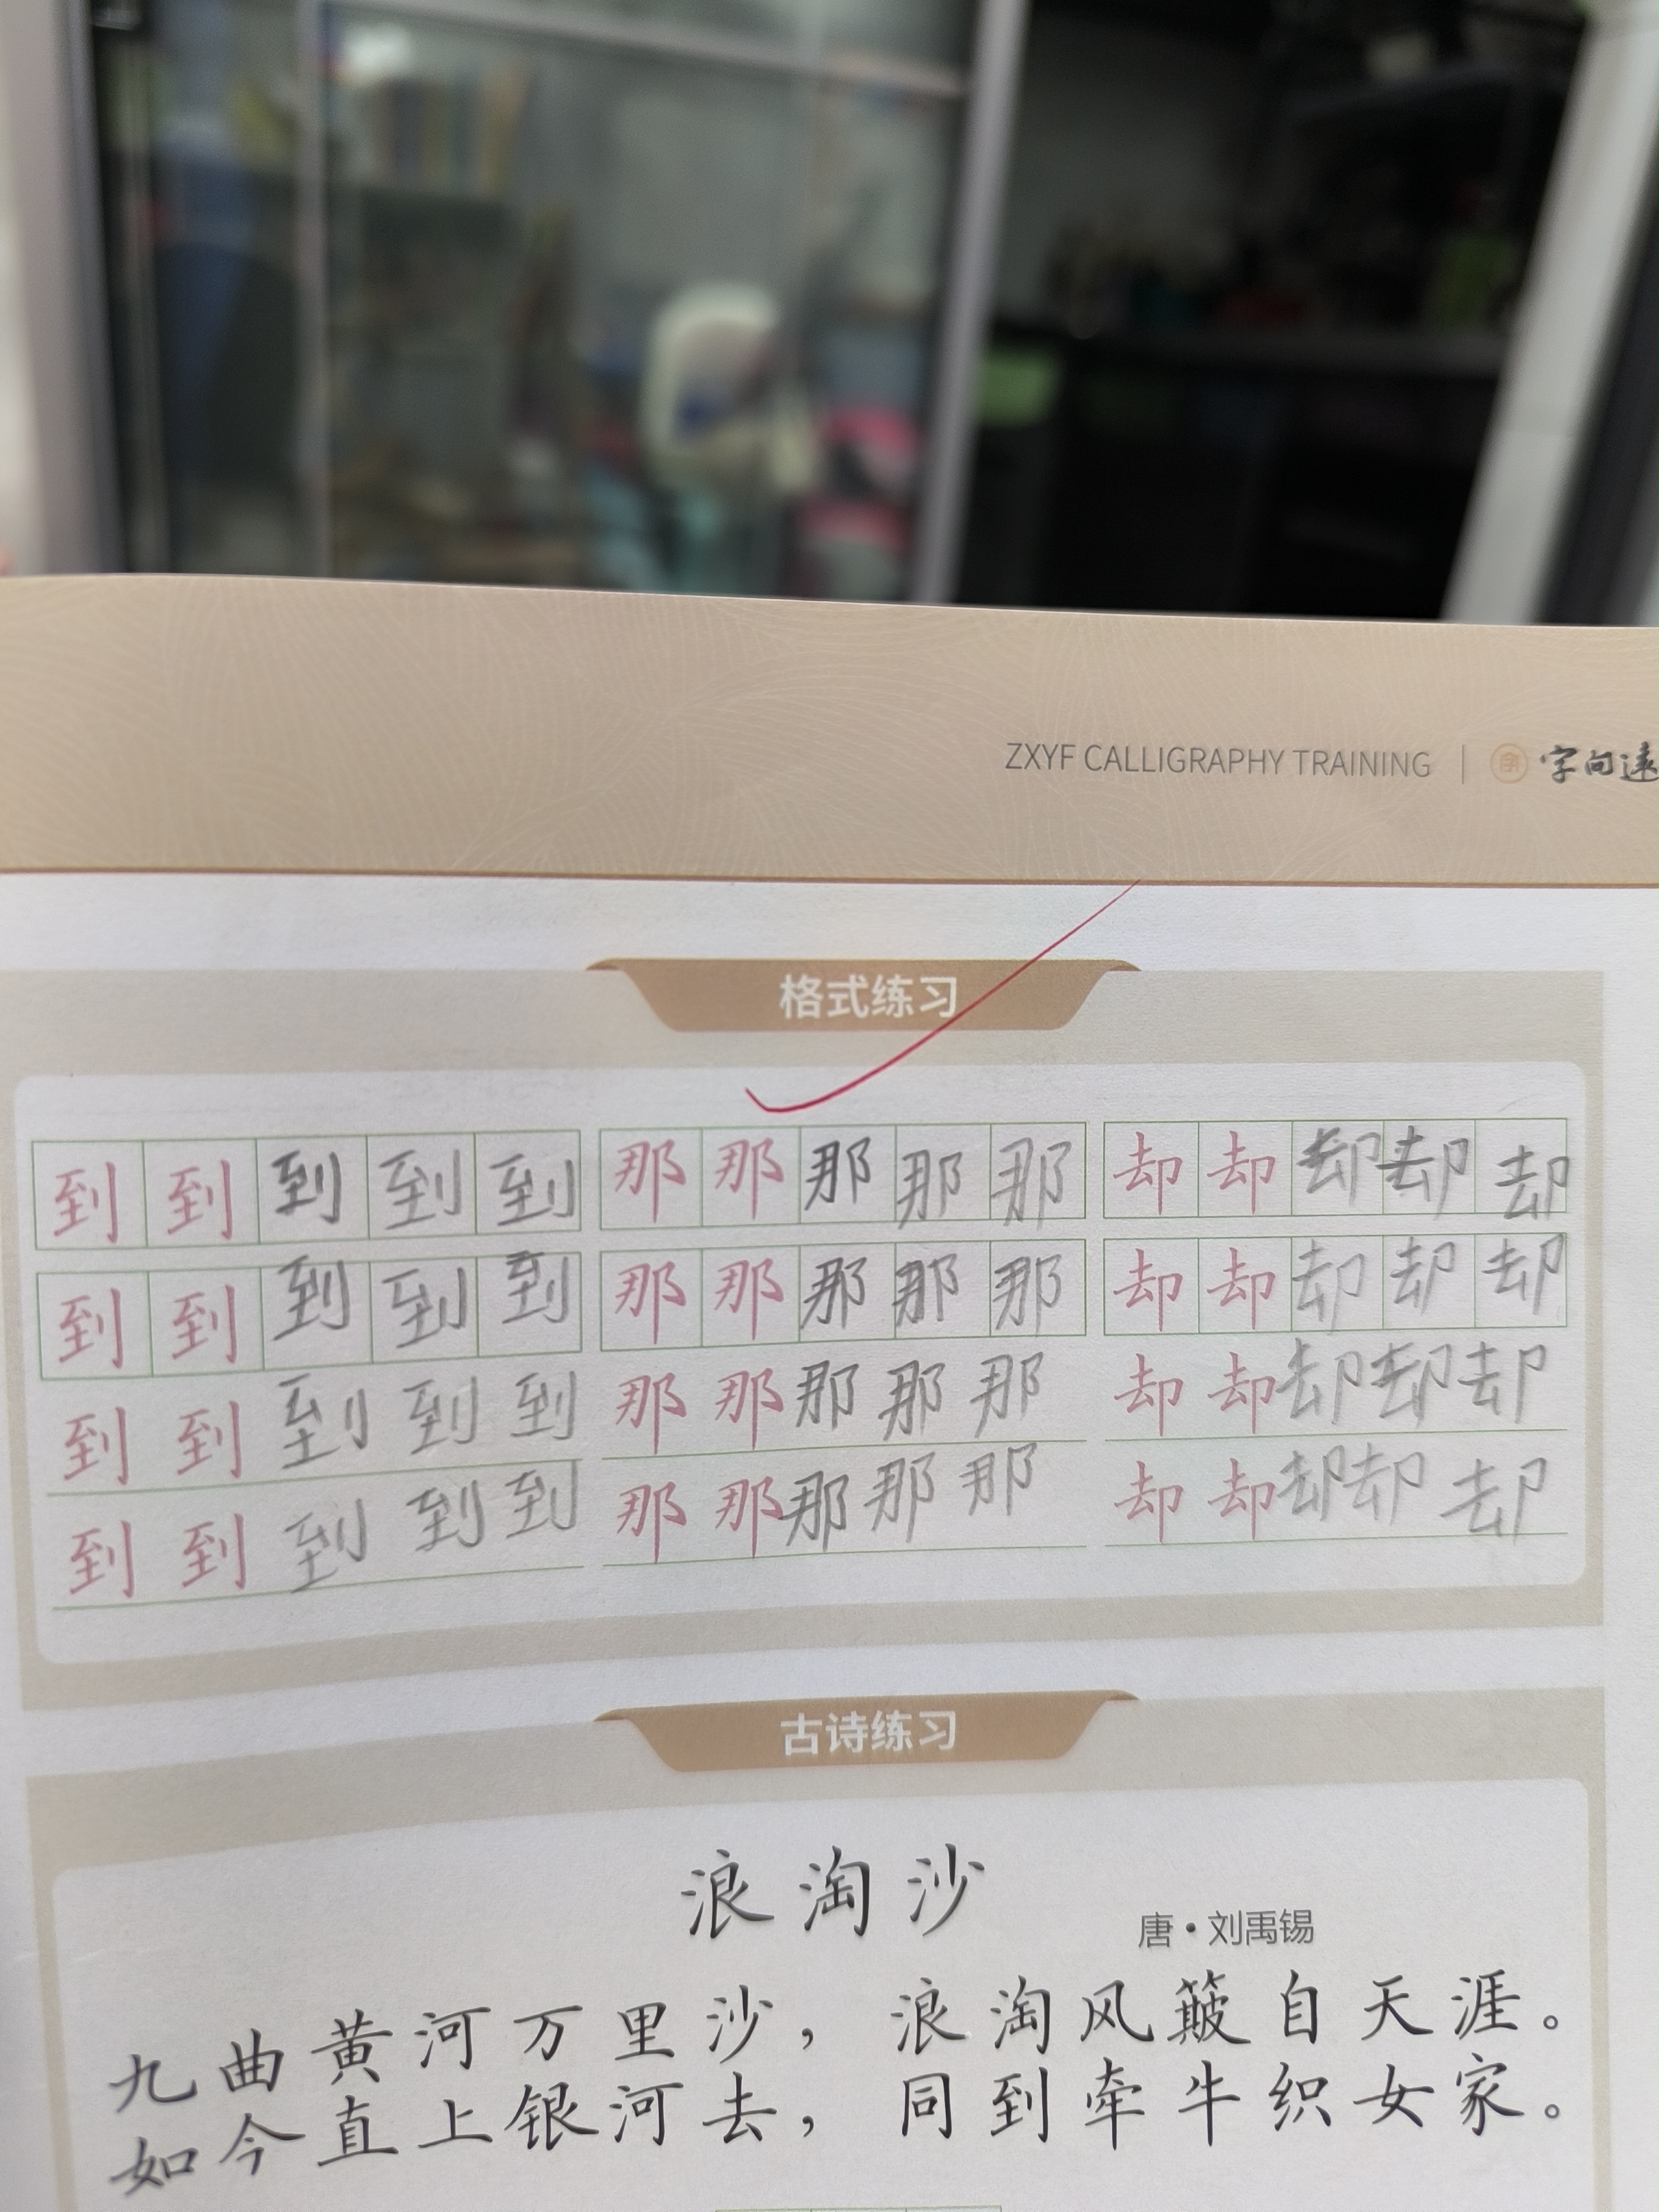 ZXYF CALLIGRAPHY TRAINING | 字向远
格式练习
到到到到到 那那那那那 却却却却却
到到到到到 那那那那那 却却却却却
到到到到到 那那那那那 却却却却却
到到到到到 那那那那那 却却却却却
古诗练习
浪淘沙
唐·刘禹锡
九曲黄河万里沙，浪淘风簸自天涯。
如今直上银河去，同到牵牛织女家。